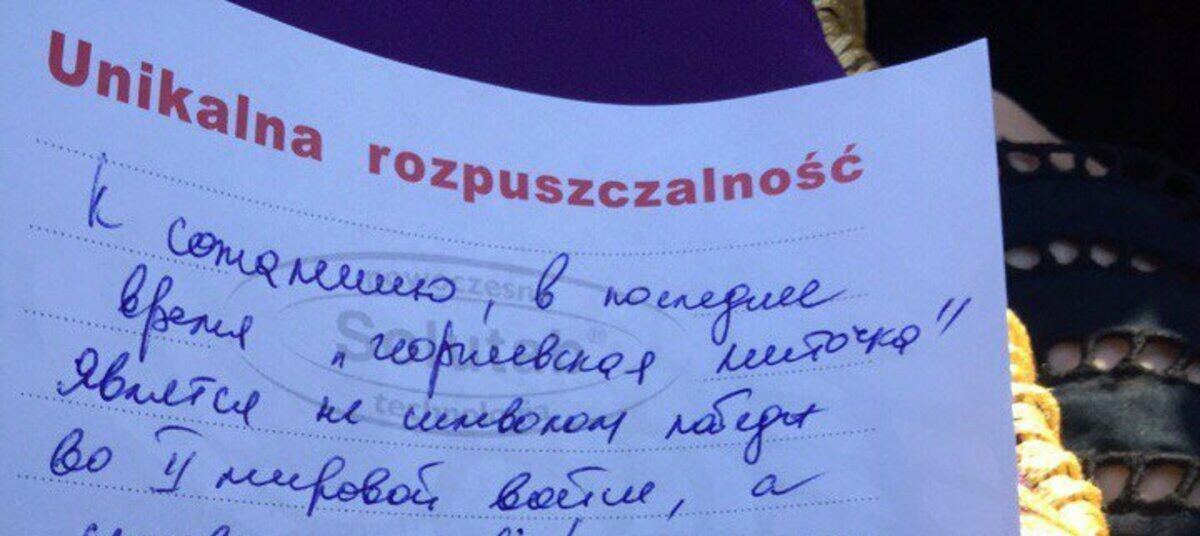 Unikalna rozpuszczalność
К сожалению, в последнее
время „георгиевская ниточка"
является не символом победы
во II мировой войне, а
Solutab®